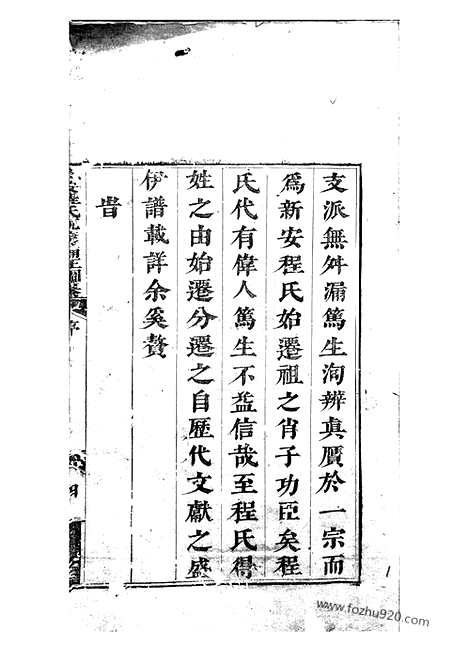 支派無舛漏篤生洵辨真贗於一宗而
為新安程氏始遷祖之肖子功臣矣程
氏代有偉人篤生不益信哉至程氏得
姓之由始遷分遷之自歷代文獻之盛
伊譜載詳余奚贅
旹
序
四
www.fozhu920.com